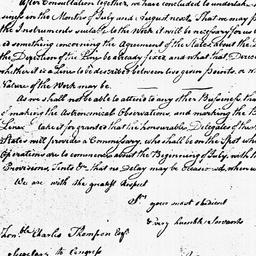 After Consultation together, we have concluded to undertake
in the Months of July and August next. That we may p
the Instruments suitable to the Work it will be necessary for us t
is something concerning the Agreement of the States about the L
the Direction of the Line be already fixed and what that Direc
whether it is a Line to be described between two given Points, or w
Nature of the Work may be.
As we shall not be able to attend to any other Business, tha
making the Astronomical Observations, and marking the B
Line take it for granted that the honourable Delegates of the
States will provide a Commissary, who shall be on the Spot whe
Operations are to commence about the Beginning of July, with t
Provisions, Tents &c that no Delay may be when w
We are with the greatest Respect
Sir
your most obedient
& very humble Servants
Honble Charles Thompson Esqr
Secretary to Congress